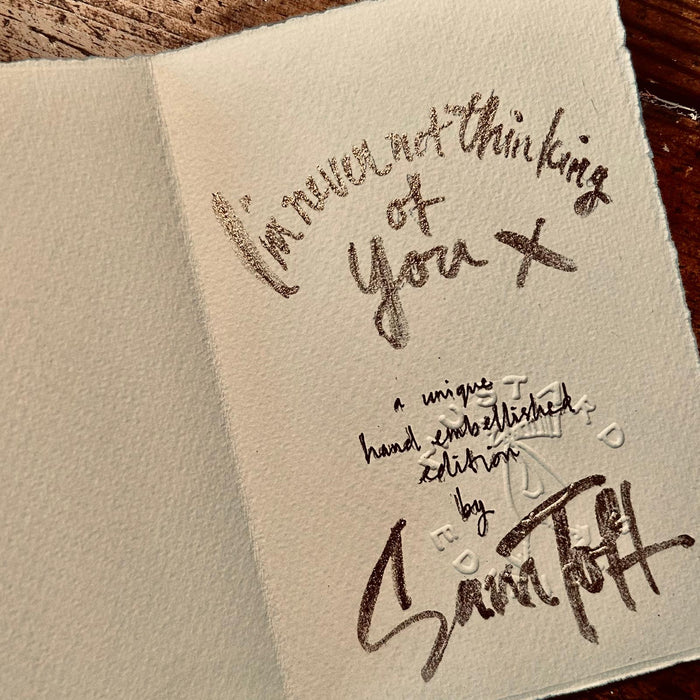 I'm never not thinking
of
you x
a unique
hand embellished
edition
by
Sam Toft